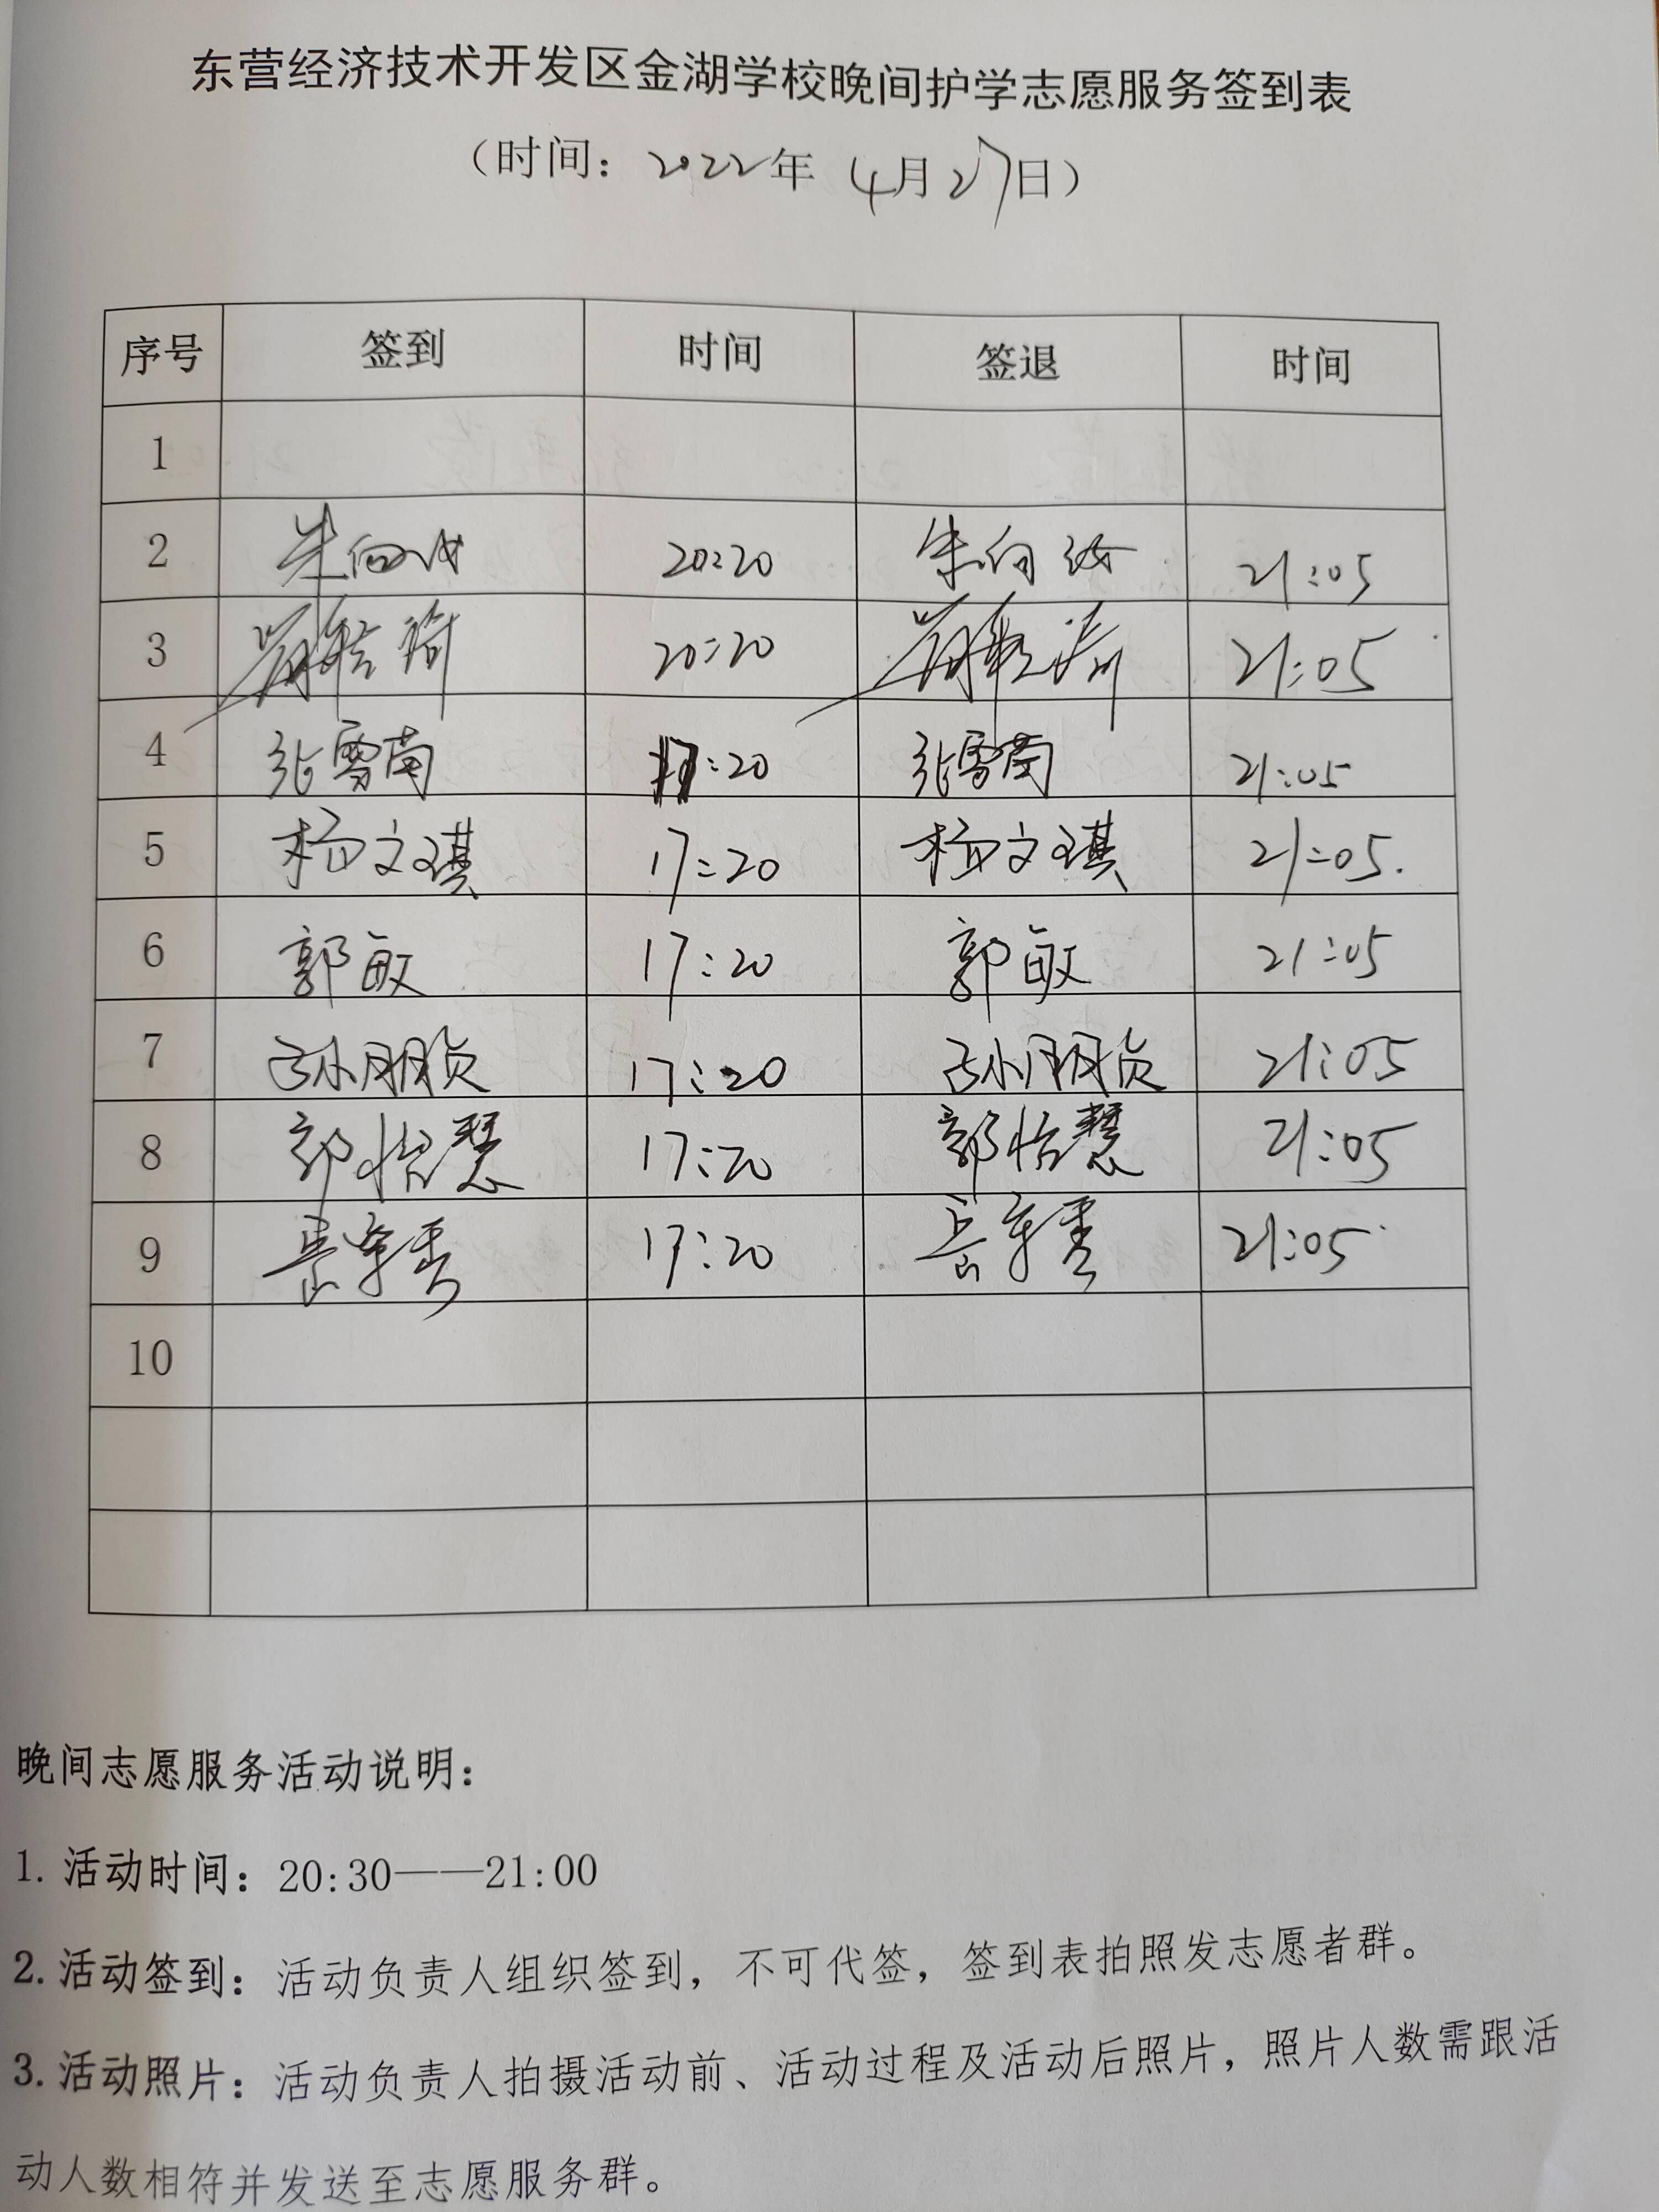 东营经济技术开发区金湖学校晚间护学志愿服务签到表
（时间：2022年 4月27日）
序号 签到 时间 签退 时间
1
2 朱向 20:20 朱向 21:05
3 20:20 21:05
4 张雪南 17:20 张雪南 21:05
5 杨文琪 17:20 杨文琪 21:05.
6 郭敏 17:20 郭敏 21:05
7 孙朋贞 17:20 孙朋贞 21:05
8 郭怡慧 17:20 郭怡慧 21:05
9 17:20 21:05
10
晚间志愿服务活动说明：
1. 活动时间：20:30——21:00
2. 活动签到：活动负责人组织签到，不可代签，签到表拍照发志愿者群。
3. 活动照片：活动负责人拍摄活动前、活动过程及活动后照片，照片人数需跟活
动人数相符并发送至志愿服务群。